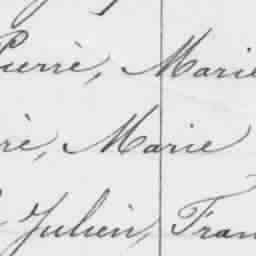 Pierrè, Marie
rè, Marie
Julièn, Fran